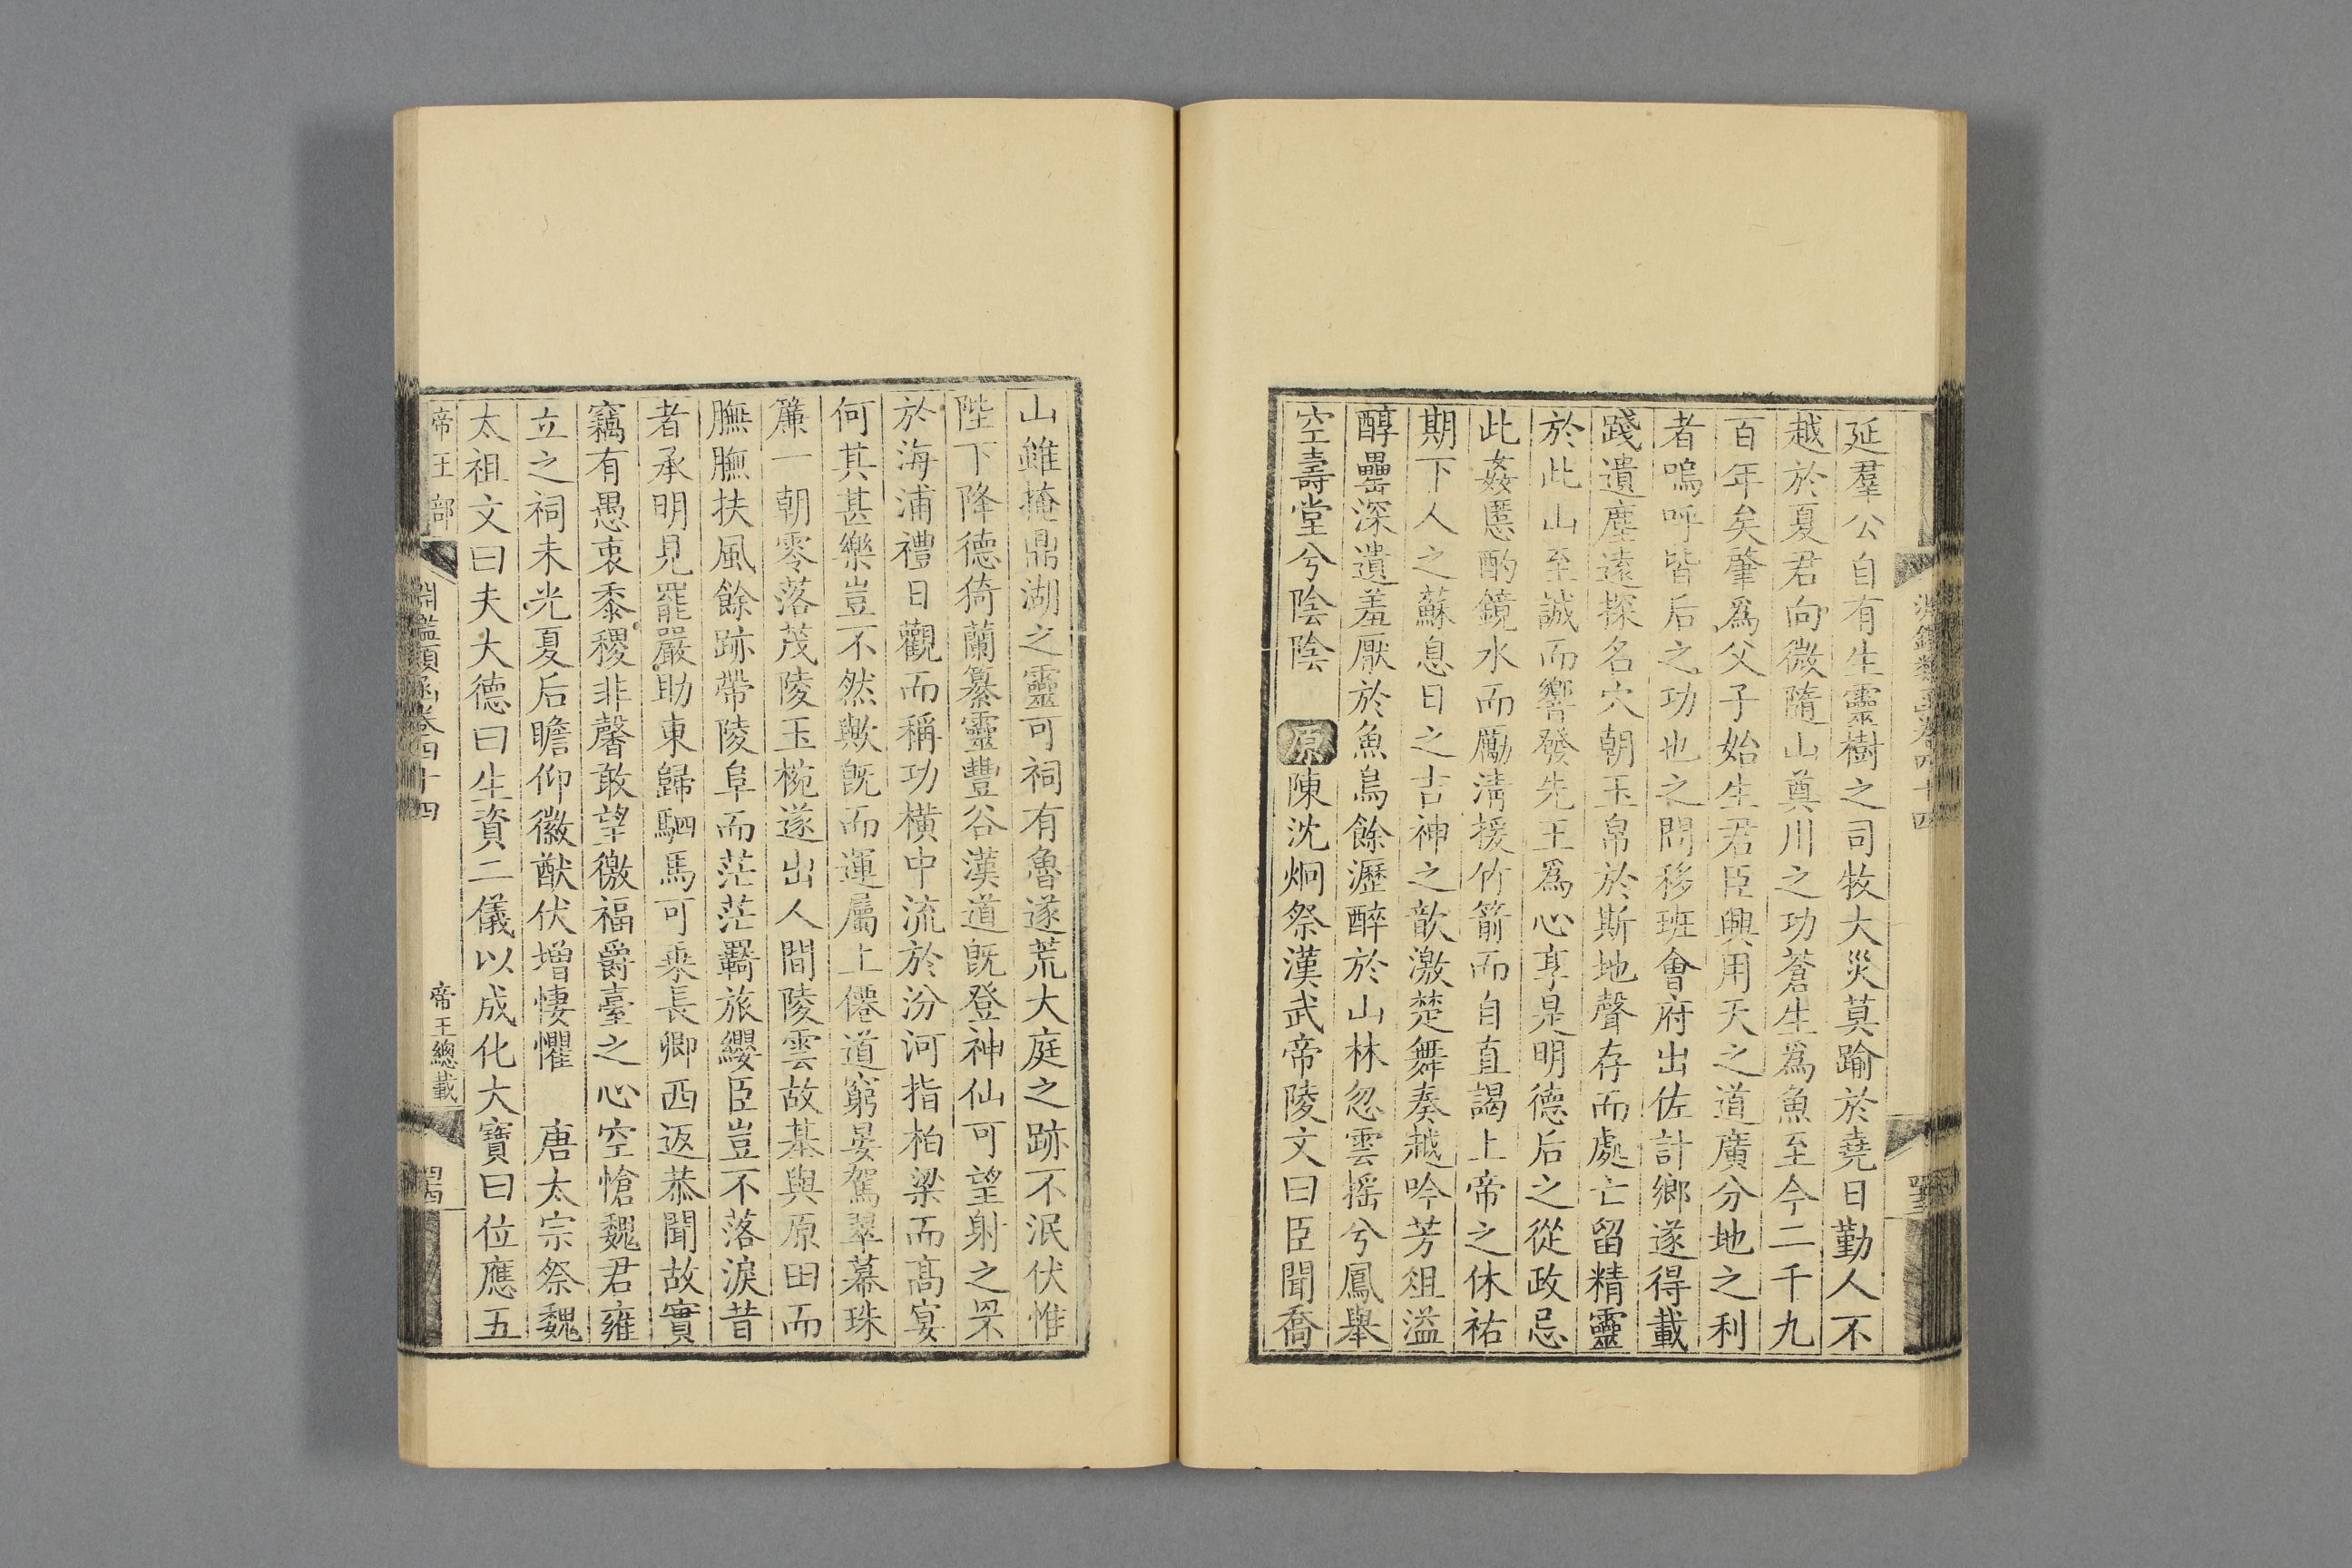 延羣公自有生靈樹之司牧大災莫踰於堯日勤人不
越於夏君向微隨山奠川之功蒼生爲魚至今二千九
百年矣肇爲父子始生君臣興用天之道廣分地之利
者嗚呼皆后之功也之問移班會府出佐計鄉遂得載
踐遺塵遠探名穴朝玉帛於斯地聲存而處亡留精靈
於此山至誠而響發先王爲心享是明德后之從政忌
此姦慝酌鏡水而勵淸援竹箭而自直謁上帝之休祐
期下人之蘇息日之吉神之歆激楚舞奏越吟芳俎溢
醇罍深遺羞厭於魚鳥餘瀝醉於山林忽雲搖兮鳳舉
空壽堂兮陰陰　原陳沈炯祭漢武帝陵文曰臣聞喬
山雖掩鼎湖之靈可祠有魯遂荒大庭之跡不泯伏惟
陛下降德猗蘭纂靈豐谷漢道旣登神仙可望射之罘
於海浦禮日觀而稱功橫中流於汾河指柏梁而高宴
何其甚樂豈不然歟旣而運屬上僊道窮晏駕翠幕珠
簾一朝零落茂陵玉椀遂出人間陵雲故基與原田而
膴膴扶風餘跡帶陵阜而茫茫羇旅纓臣豈不落淚昔
者承明見罷嚴助東歸駟馬可乗長卿西返恭聞故實
竊有愚衷黍稷非馨敢望徼福爵臺之心空愴魏君雍
立之祠未光夏后瞻仰徽猷伏增悽懼　唐太宗祭魏
太祖文曰夫大德曰生資二儀以成化大寶曰位應五
帝王部
淵鑑類函卷四十四
帝王總載